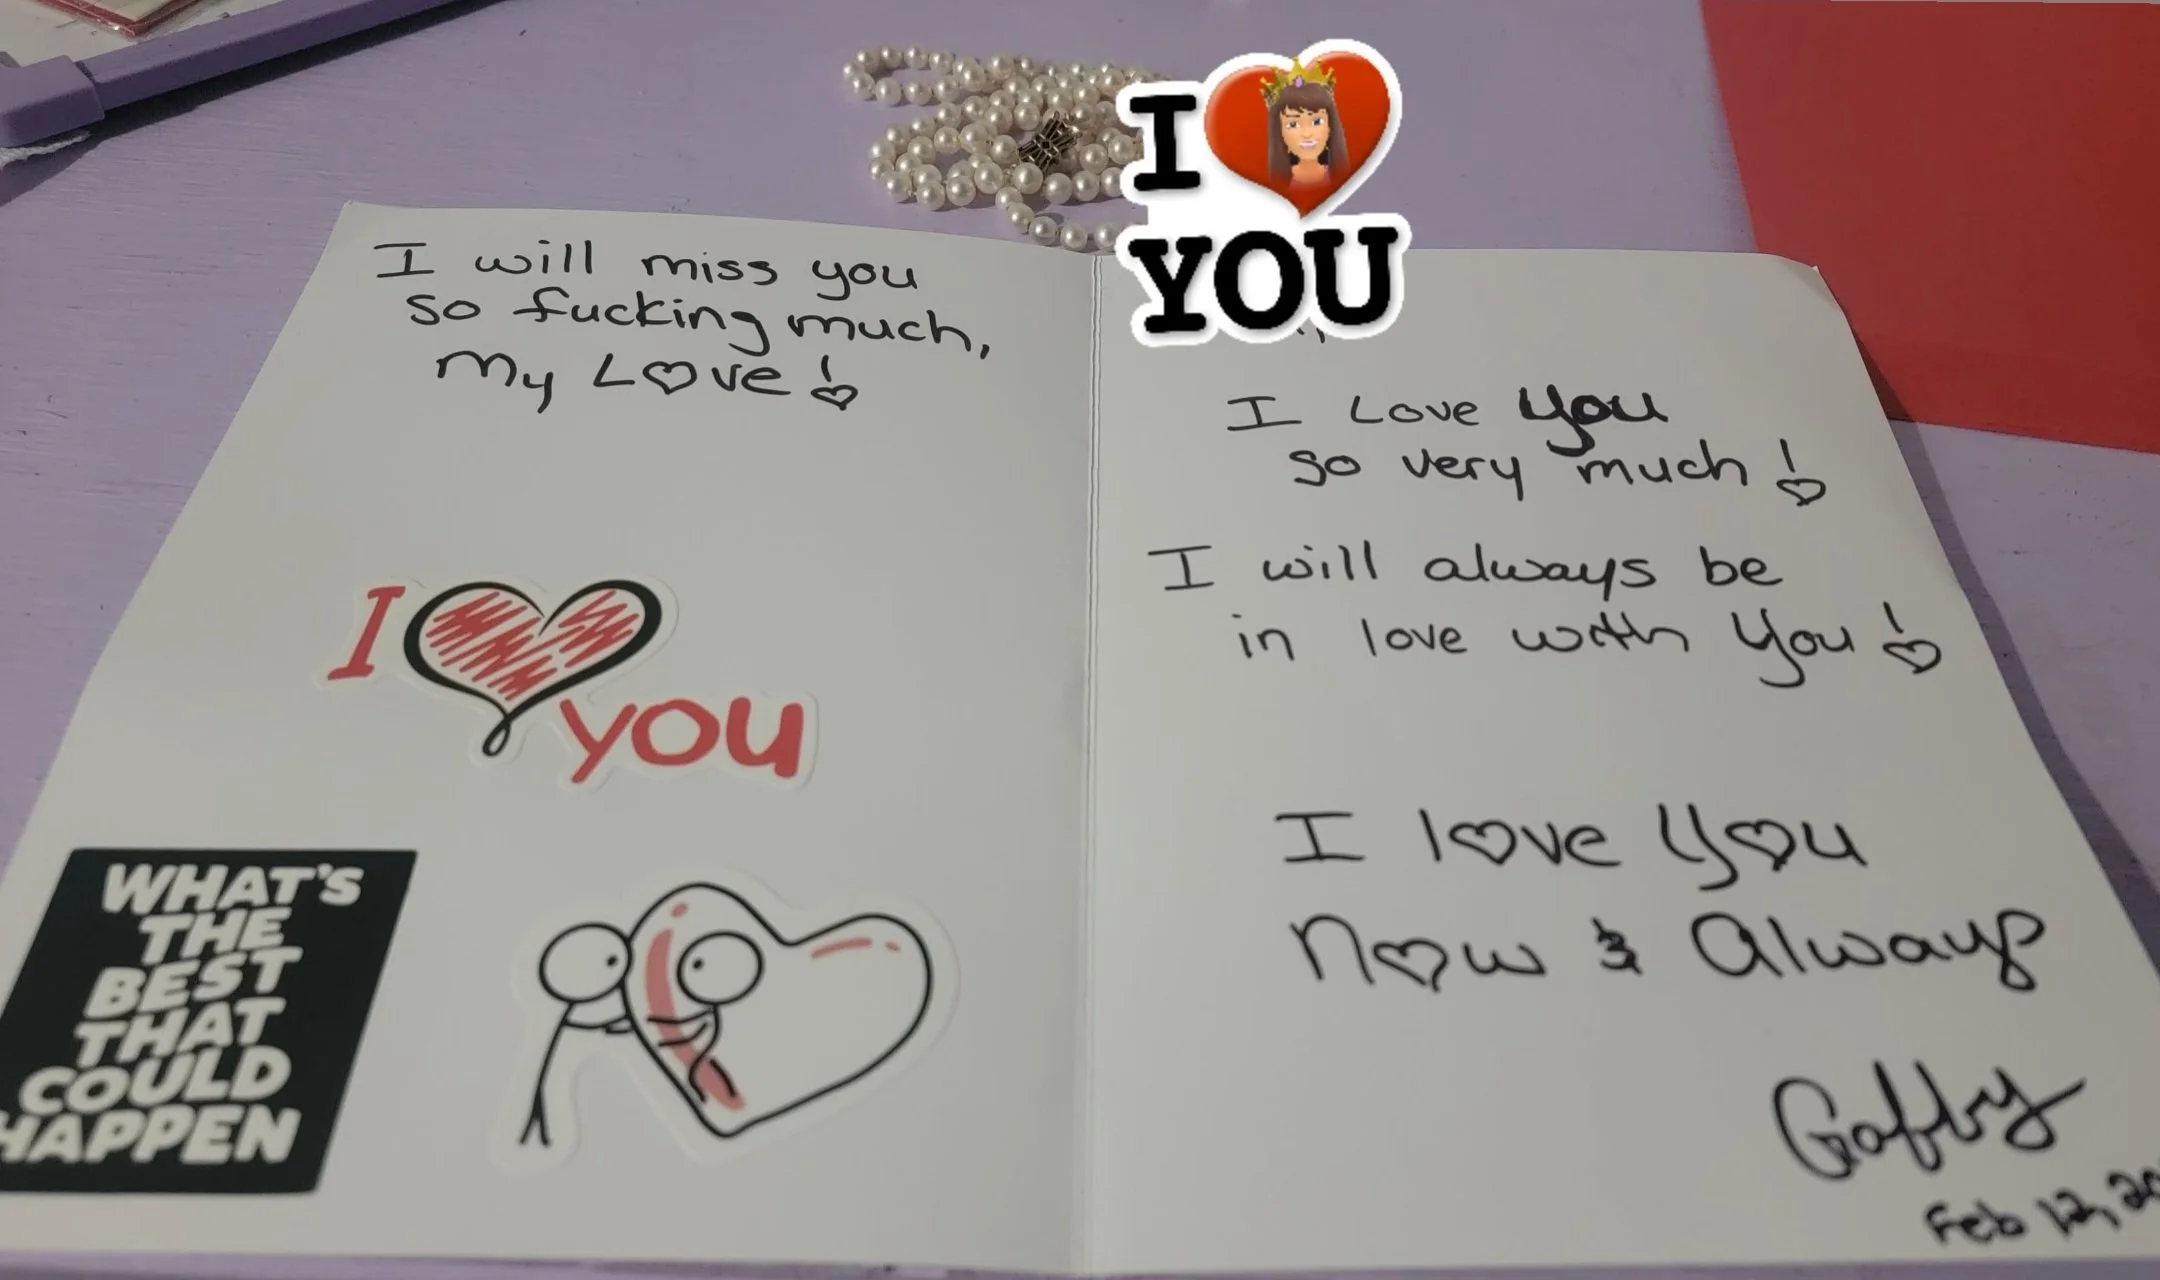 I will miss you
so fucking much,
My Love!
I you
WHAT'S
THE
BEST
THAT
COULD
HAPPEN
I
YOU
I Love You
so very much!
I will always be
in love with You!
I love You
Now & Always
Gabby
Feb 12, 20